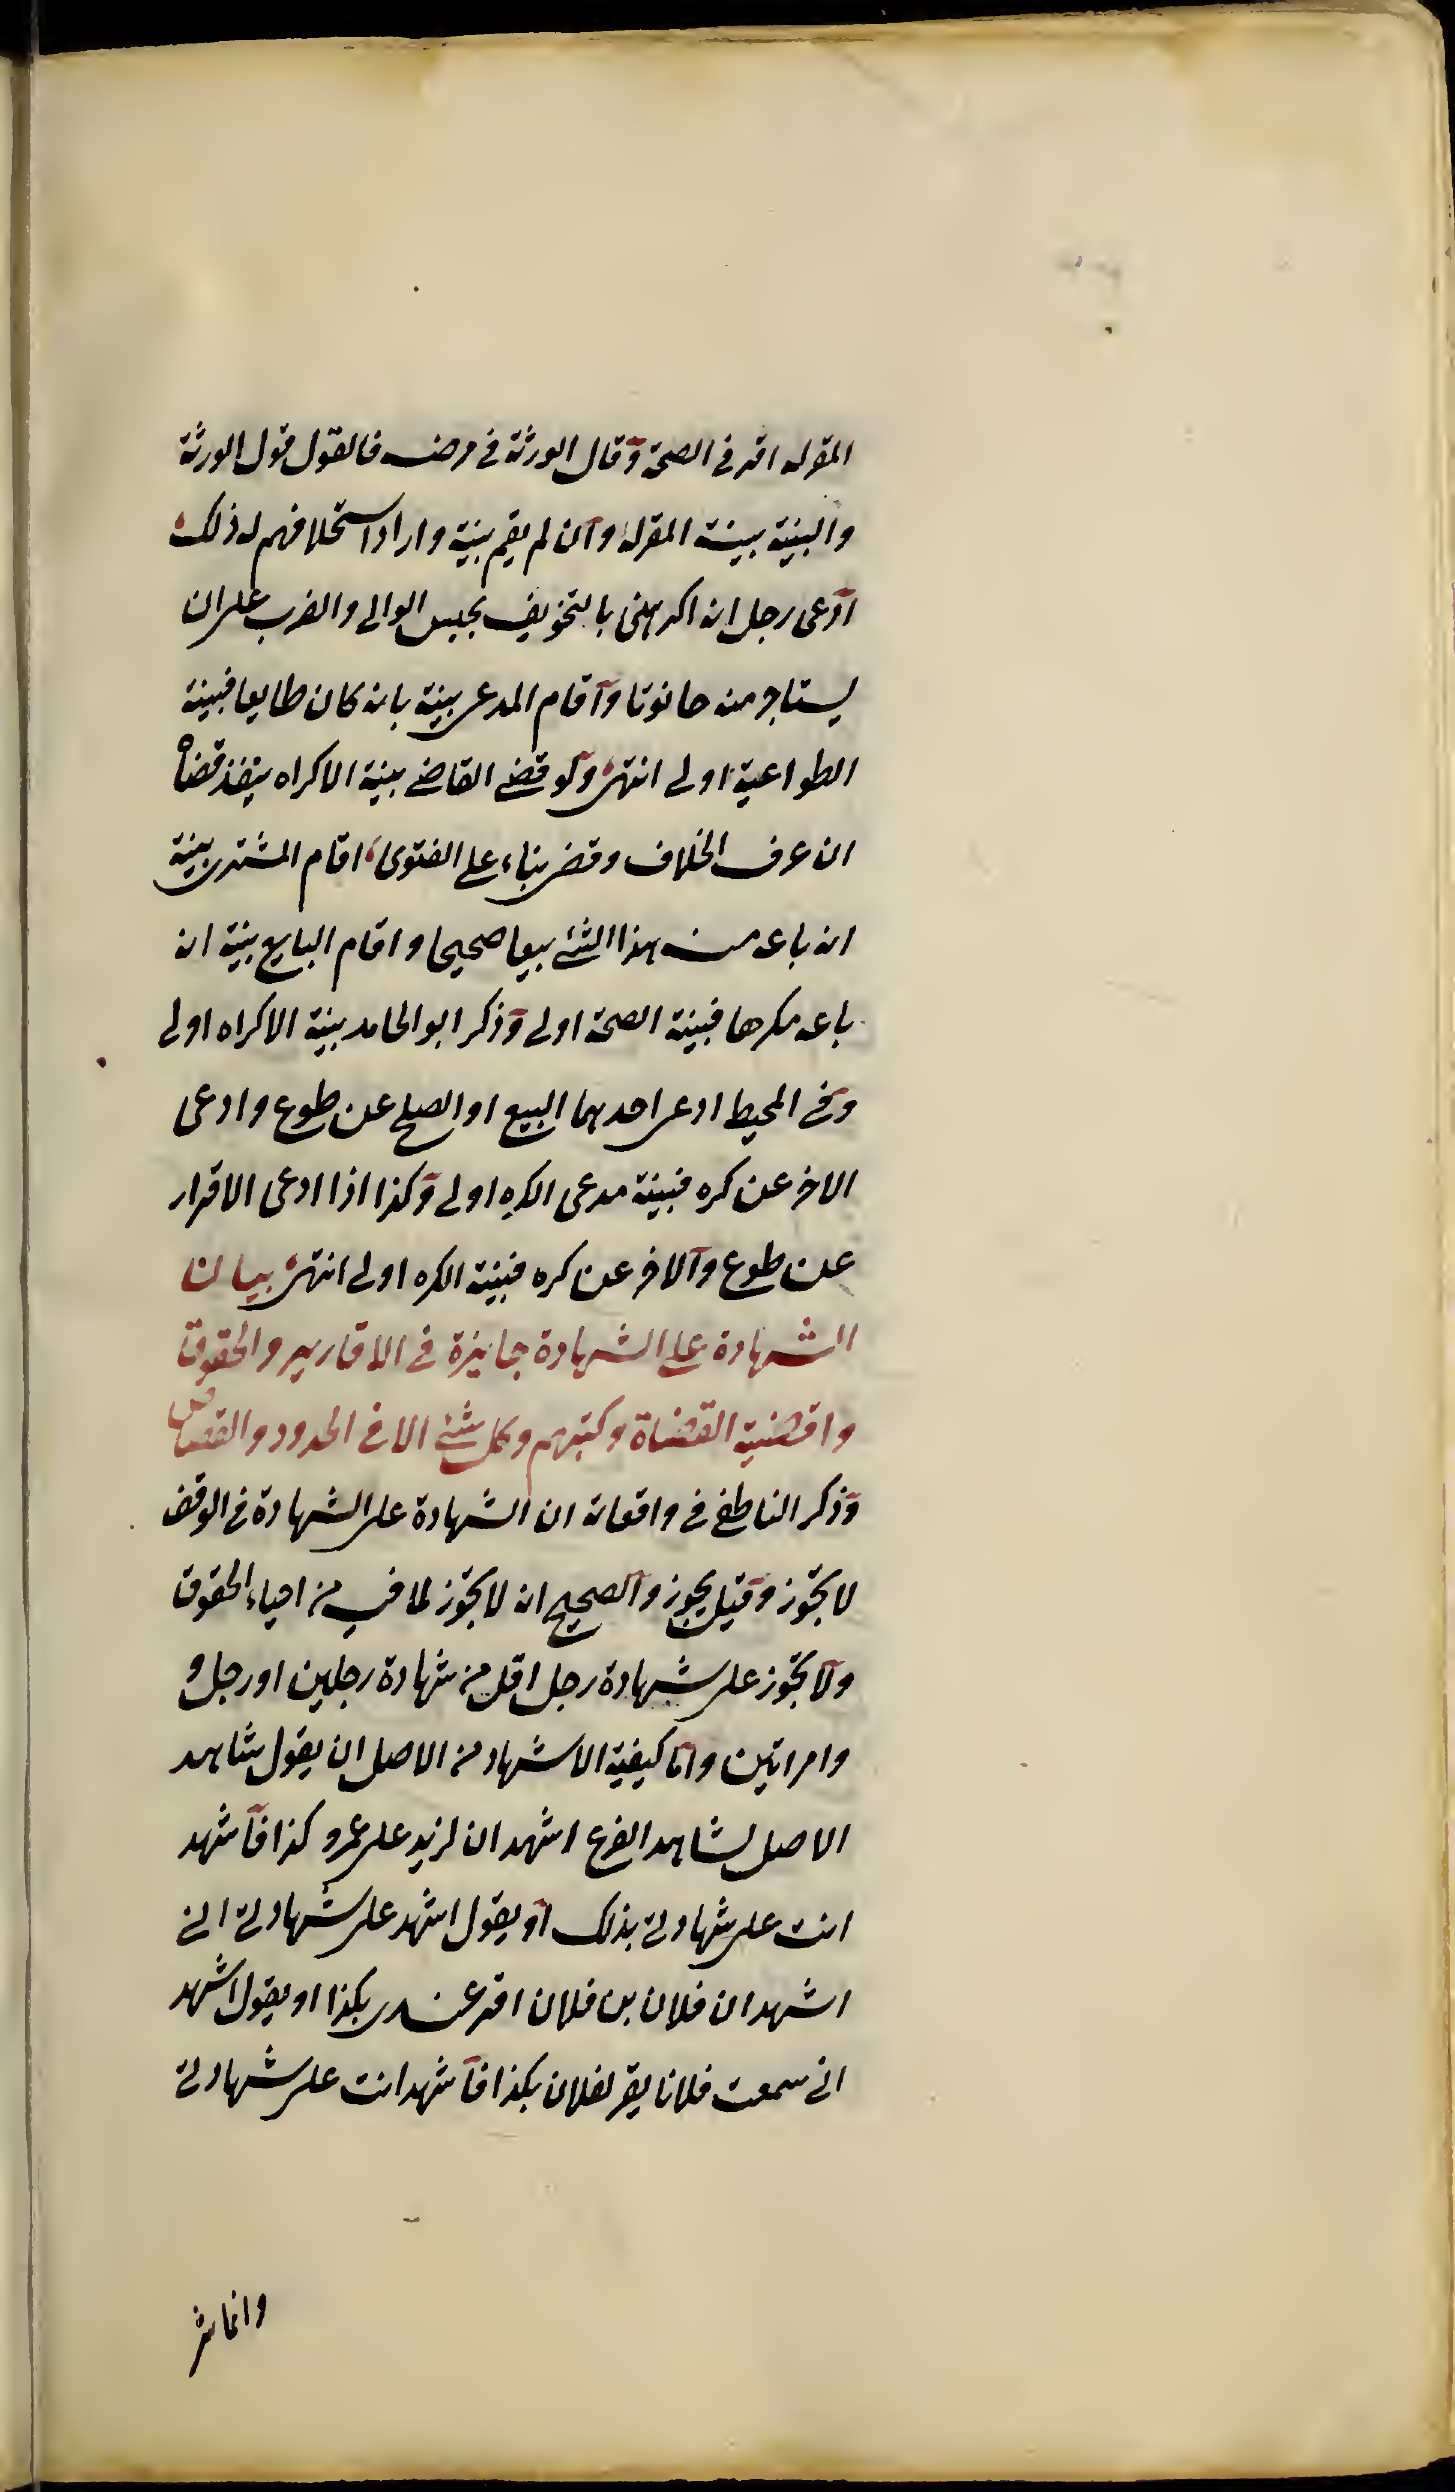 المقر له اقر فى الصحة وقال الورثة فى مرضه فالقول قول الورثة
والبينة بينة المقر له وان لم يقم بينة واراد استحلافهم له ذلك
ادعى رجل انه اكرهنى بالتخويف بحبس الوالى والضرب على ان
يستاجر منه حانوتا واقام المدعى بينة بانه كان طايعا فبينة
الطواعية اولى انتهى ولو قضى القاضى ببينة الاكراه ينفذ قضاه
ان عرف الخلاف وقضى بناء على الفتوى اقام المشترى بينة
انه باعه منه هذا الشئ بيعا صحيحا واقام البايع بينة انه
باعه مكرها فبينة الصحة اولى وذكر ابو الحامد بينة الاكراه اولى
وفى المحيط ادعى احدهما البيع او الصلح عن طوع وادعى
الاخر عن كره فبينة مدعى الكره اولى وكذا اذا ادعى الاقرار
عن طوع والاخر عن كره فبينة الكره اولى انتهى بيان
الشهادة على الشهادة جايزة فى الاقارير والحقوق
واقضية القضاة وكتبهم وكل شئ الا فى الحدود والقصاص
وذكر الناطفى فى واقعاته ان الشهادة على الشهادة فى الوقف
لا تجوز وقيل يجوز والصحيح انه لا تجوز لما فيه من احياء الحقوق
ولا تجوز على شهادة رجل اقل من شهادة رجلين او رجل و
وامراتين واما كيفية الاشهاد من الاصل ان يقول شاهد
الاصل لشاهد الفرع اشهد ان لزيد على عمرو كذا فاشهد
انت على شهادتى بذلك او يقول اشهد على شهادتى انى
اشهد ان فلان بن فلان اقر عندى بكذا او يقول اشهد
انى سمعت فلانا يقر لفلان بكذا فاشهد انت على شهادتى
وانما شر